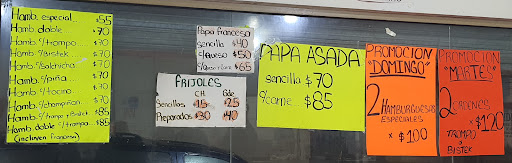 Hamb. especial $55
Hamb. doble $70
Hamb. c/trompo $70
Hamb. c/Bistek $70
Hamb. c/Salchicha $70
Hamb. c/piña $70
Hamb. c/tocino $70
Hamb. c/champiñon $70
Hamb. c/trompo y Bistek $85
Hamb. doble c/trompo $85
(incluyen francesa)
Papa francesa
sencilla $40
c/queso $50
$65
FRIJOLES
CH. Gde
Sencillos $15 $25
Preparados $30 $40
PAPA ASADA
sencilla $70
c/carne $85
PROMOCION
"DOMINGO"
2 HAMBURGUESAS
ESPECIALES
x $100
PROMOCION
"MARTES"
2 ORDENES
x $120
TROMPO
Y
BISTEK